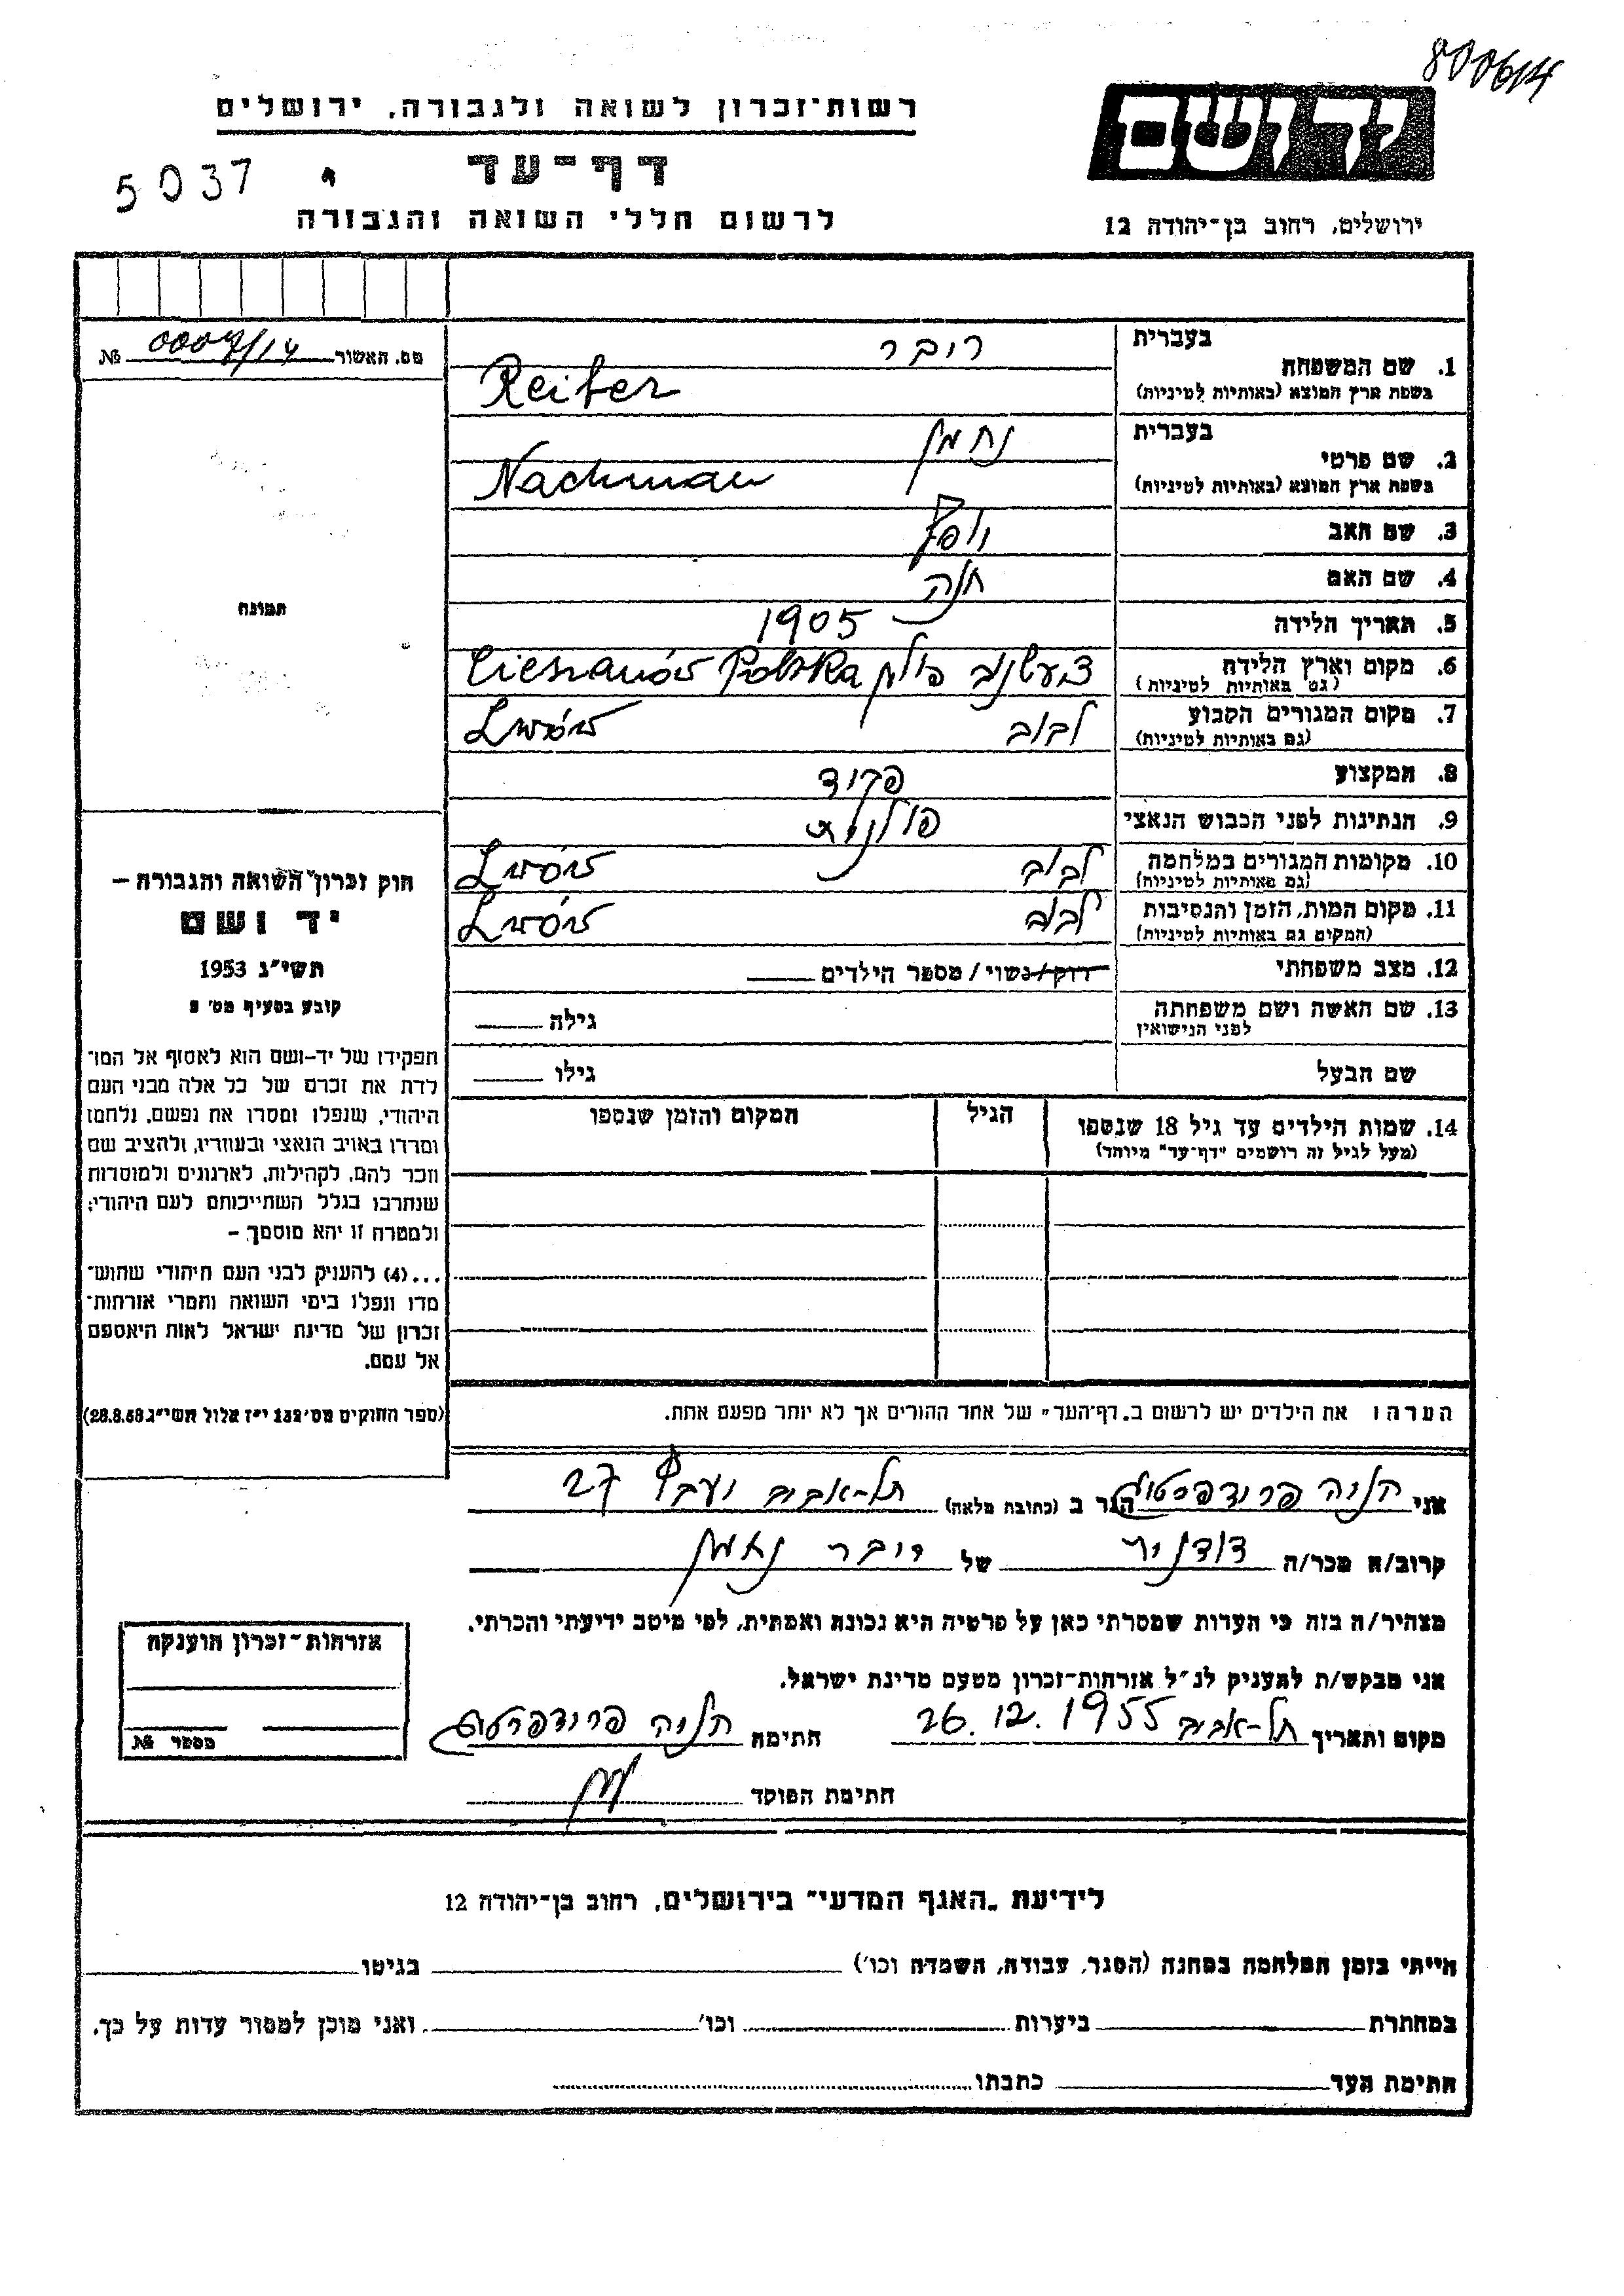 800614
רשות־זכרון לשואה ולגבורה, ירושלים
יד ושם
5037
דף־עד
לרשום חללי השואה והגבורה
ירושלים, רחוב בן־יהודה 12
בעברית
ריבר
1. שם המשפחה
בשפת ארץ המוצא (באותיות לטיניות)
Reiber
מס. האשור № 
בעברית
נחמן
2. שם פרטי
בשפת ארץ המוצא (באותיות לטיניות)
Nachman
3. שם האב
4. שם האם חנה
5. תאריך הלידה 1905
6. מקום וארץ הלידה פולין Cieszanów Polska
(גם באותיות לטיניות)
7. מקום המגורים הקבוע לבוב Lwów
(גם באותיות לטיניות)
8. המקצוע פקיד
9. הנתינות לפני הכבוש הנאצי פולנית
10. מקומות המגורים במלחמה לבוב Lwów
(גם באותיות לטיניות)
11. מקום המות, הזמן והנסיבות לבוב Lwów
(המקום גם באותיות לטיניות)
12. מצב משפחתי רוק/נשוי/מספר הילדים
13. שם האשה ושם משפחתה
לפני הנישואין
גילה
שם הבעל גילו
14. שמות הילדים עד גיל 18 שנספו הגיל המקום והזמן שנספו
(מעל לגיל זה רושמים "דף־עד" מיוחד)
הערה: את הילדים יש לרשום ב„דף־העד" של אחד ההורים אך לא יותר מפעם אחת.
תמונה
חוק זכרון השואה והגבורה –
יד ושם
תשי"ג 1953
קובע בסעיף מס' 2
תפקידו של יד-ושם הוא לאסוף אל המו־
לדת את זכרם של כל אלה מבני העם
היהודי, שנפלו ומסרו את נפשם, נלחמו
ומרדו באויב הנאצי ובעוזריו, ולהציב שם
וזכר להם, לקהילות, לארגונים ולמוסדות
שנחרבו בגלל השתייכותם לעם היהודי;
ולמטרה זו יהא מוסמך –
...(4) להעניק לבני העם היהודי שהוש־
מדו ונפלו בימי השואה והמרי אזרחות־
זכרון של מדינת ישראל לאות היאספם
אל עמם.
(ספר החוקים מס' 132 י"ז אלול תשי"ג 28.8.53)
אני הגר ב (כתובת מלאה) תל-אביב 27
קרוב/ה מכר/ה של ריבר
מצהיר/ה בזה כי העדות שמסרתי כאן על פרטיה היא נכונה ואמתית, לפי מיטב ידיעתי והכרתי.
אני מבקש/ת להעניק לנ"ל אזרחות־זכרון מטעם מדינת ישראל.
מקום ותאריך תל-אביב 26.12.1955 חתימה
חתימת הפוקד
אזרחות־זכרון הוענקה
מספר №
לידיעת „האגף המדעי" בירושלים, רחוב בן־יהודה 12
הייתי בזמן המלחמה במחנה (הסגר, עבודה, השמדה וכו') בגיטו
במחתרת ביערות וכו' ואני מוכן למסור עדות על כך.
חתימת העד כתבתו